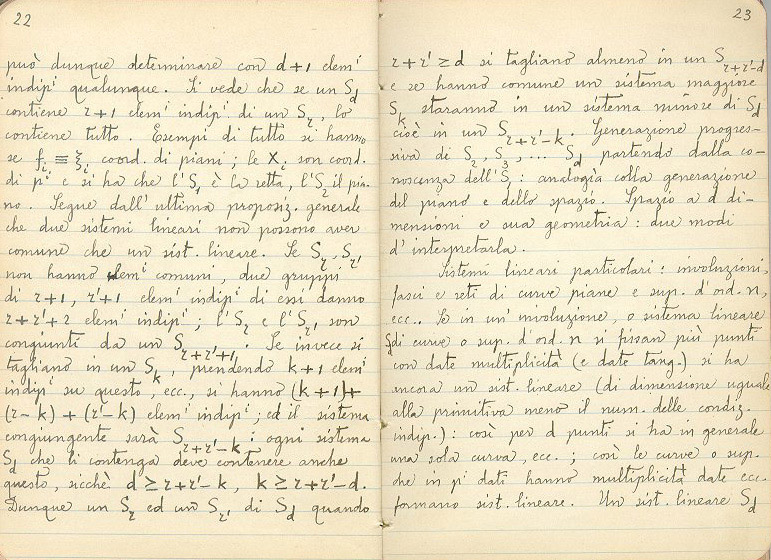 22
può dunque determinare con d+1 elemⁱ
indipⁱ qualunque. Si vede che se un S_d
contiene r+1 elemⁱ indipⁱ di un S_r, lo
contiene tutto. Esempi di tutto si hanno
se f_i ≡ ξ_i coord. di piani; le X_i son coord.
di pⁱ e si ha che l'S_1 è la retta, l'S_2 il pia-
no. Segue dall'ultima proposiz. generale
che due sistemi lineari non possono aver
comune che un sist. lineare. Se S_r, S_r'
non hanno elemⁱ comuni, due gruppi
di r+1, r'+1 elemⁱ indipⁱ di essi danno
r+r'+2 elemⁱ indipⁱ; l'S_r e l'S_r' son
congiunti da un S_r+r'+1. Se invece si
tagliano in un S_k, prendendo k+1 elemⁱ
indipⁱ su questo, ecc., si hanno (k+1)+
(r-k)+(r'-k) elemⁱ indipⁱ; ed il sistema
congiungente sarà S_r+r'-k: ogni sistema
S_d che li contenga deve contenere anche
questo, sicchè d ≥ r+r'-k, k ≥ r+r'-d.
Dunque un S_r ed un S_r' di S_d quando
23
r+r' ≥ d si tagliano almeno in un S_r+r'-d
e se hanno comune un sistema maggiore
S_k staranno in un sistema minore di S_d
cioè in un S_r+r'-k. Generazione progres-
siva di S_2, S_3, ... S_d partendo dalla co-
noscenza dell'S_1: analogia colla generazione
del piano e dello spazio. Spazio a d di-
mensioni e sua geometria: due modi
d'interpretarla.
Sistemi lineari particolari: involuzioni,
fasci e reti di curve piane e sup. d'ord. n,
ecc. Se in un'involuzione, o sistema lineare
S_d di curve o sup. d'ord. n si fissan più punti
con date multiplicità (e date tang.) si ha
ancora un sist. lineare (di dimensione uguale
alla primitiva meno il num. delle condiz.
indip.): così per d punti si ha in generale
una sola curva, ecc.; così le curve o sup.
che in pⁱ dati hanno multiplicità date ecc.
formano sist. lineare. Un sist. lineare S_d